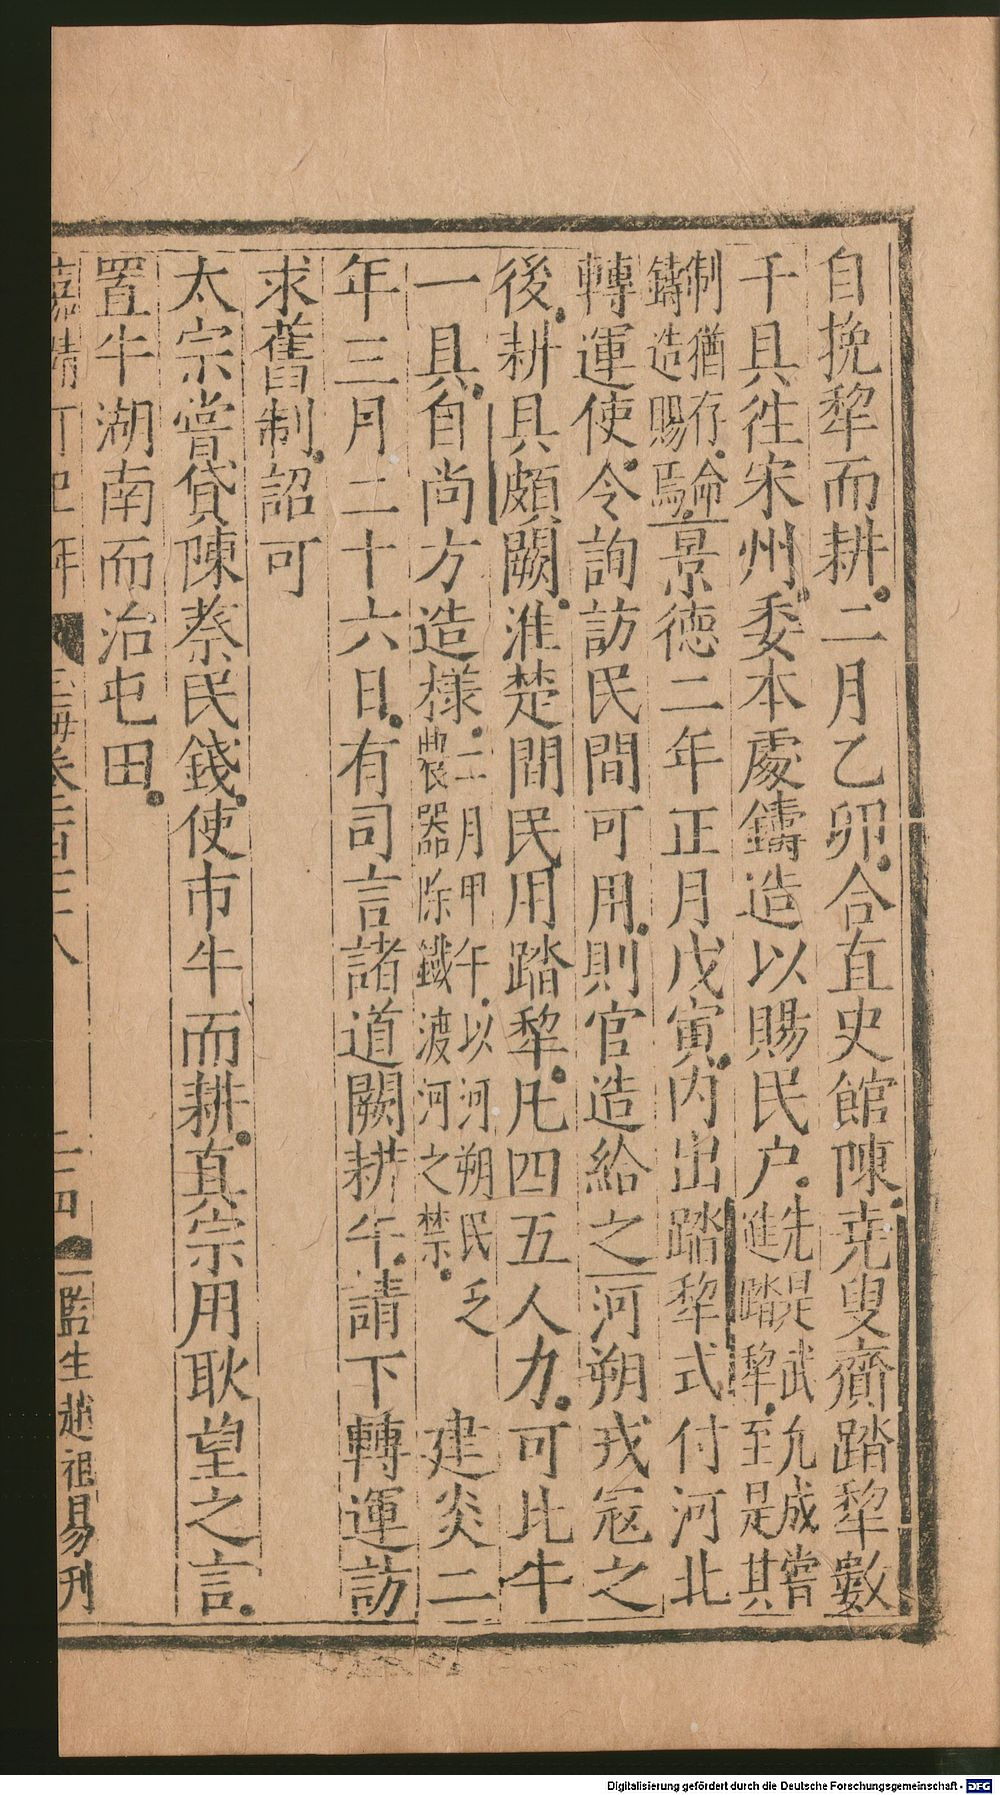 自挽犂而耕二月乙卯合直史館陳尭叟齎踏犂數
千具徃宋州委本處鑄造以賜民户先是武允成嘗進踏犂至是其
制猶存命鑄造賜焉景德二年正月戊寅内出踏犂式付河北
轉運使令詢訪民間可用則官造給之河朔戎寇之
後耕具頗闕淮楚間民用踏犂凡四五人力可比牛
一具自尚方造様二月甲午以河朔民乏農器除鐵渡河之禁建炎二
年三月二十六日有司言諸道闕耕牛請下轉運訪
求舊制詔可
太宗嘗貸陳蔡民錢使市牛而耕真宗用耿望之言
置牛湖南而治屯田
嘉靖丁巳年 玉海卷一百七十八 二十四 監生趙祖易刊
Digitalisierung gefördert durch die Deutsche Forschungsgemeinschaft - DFG